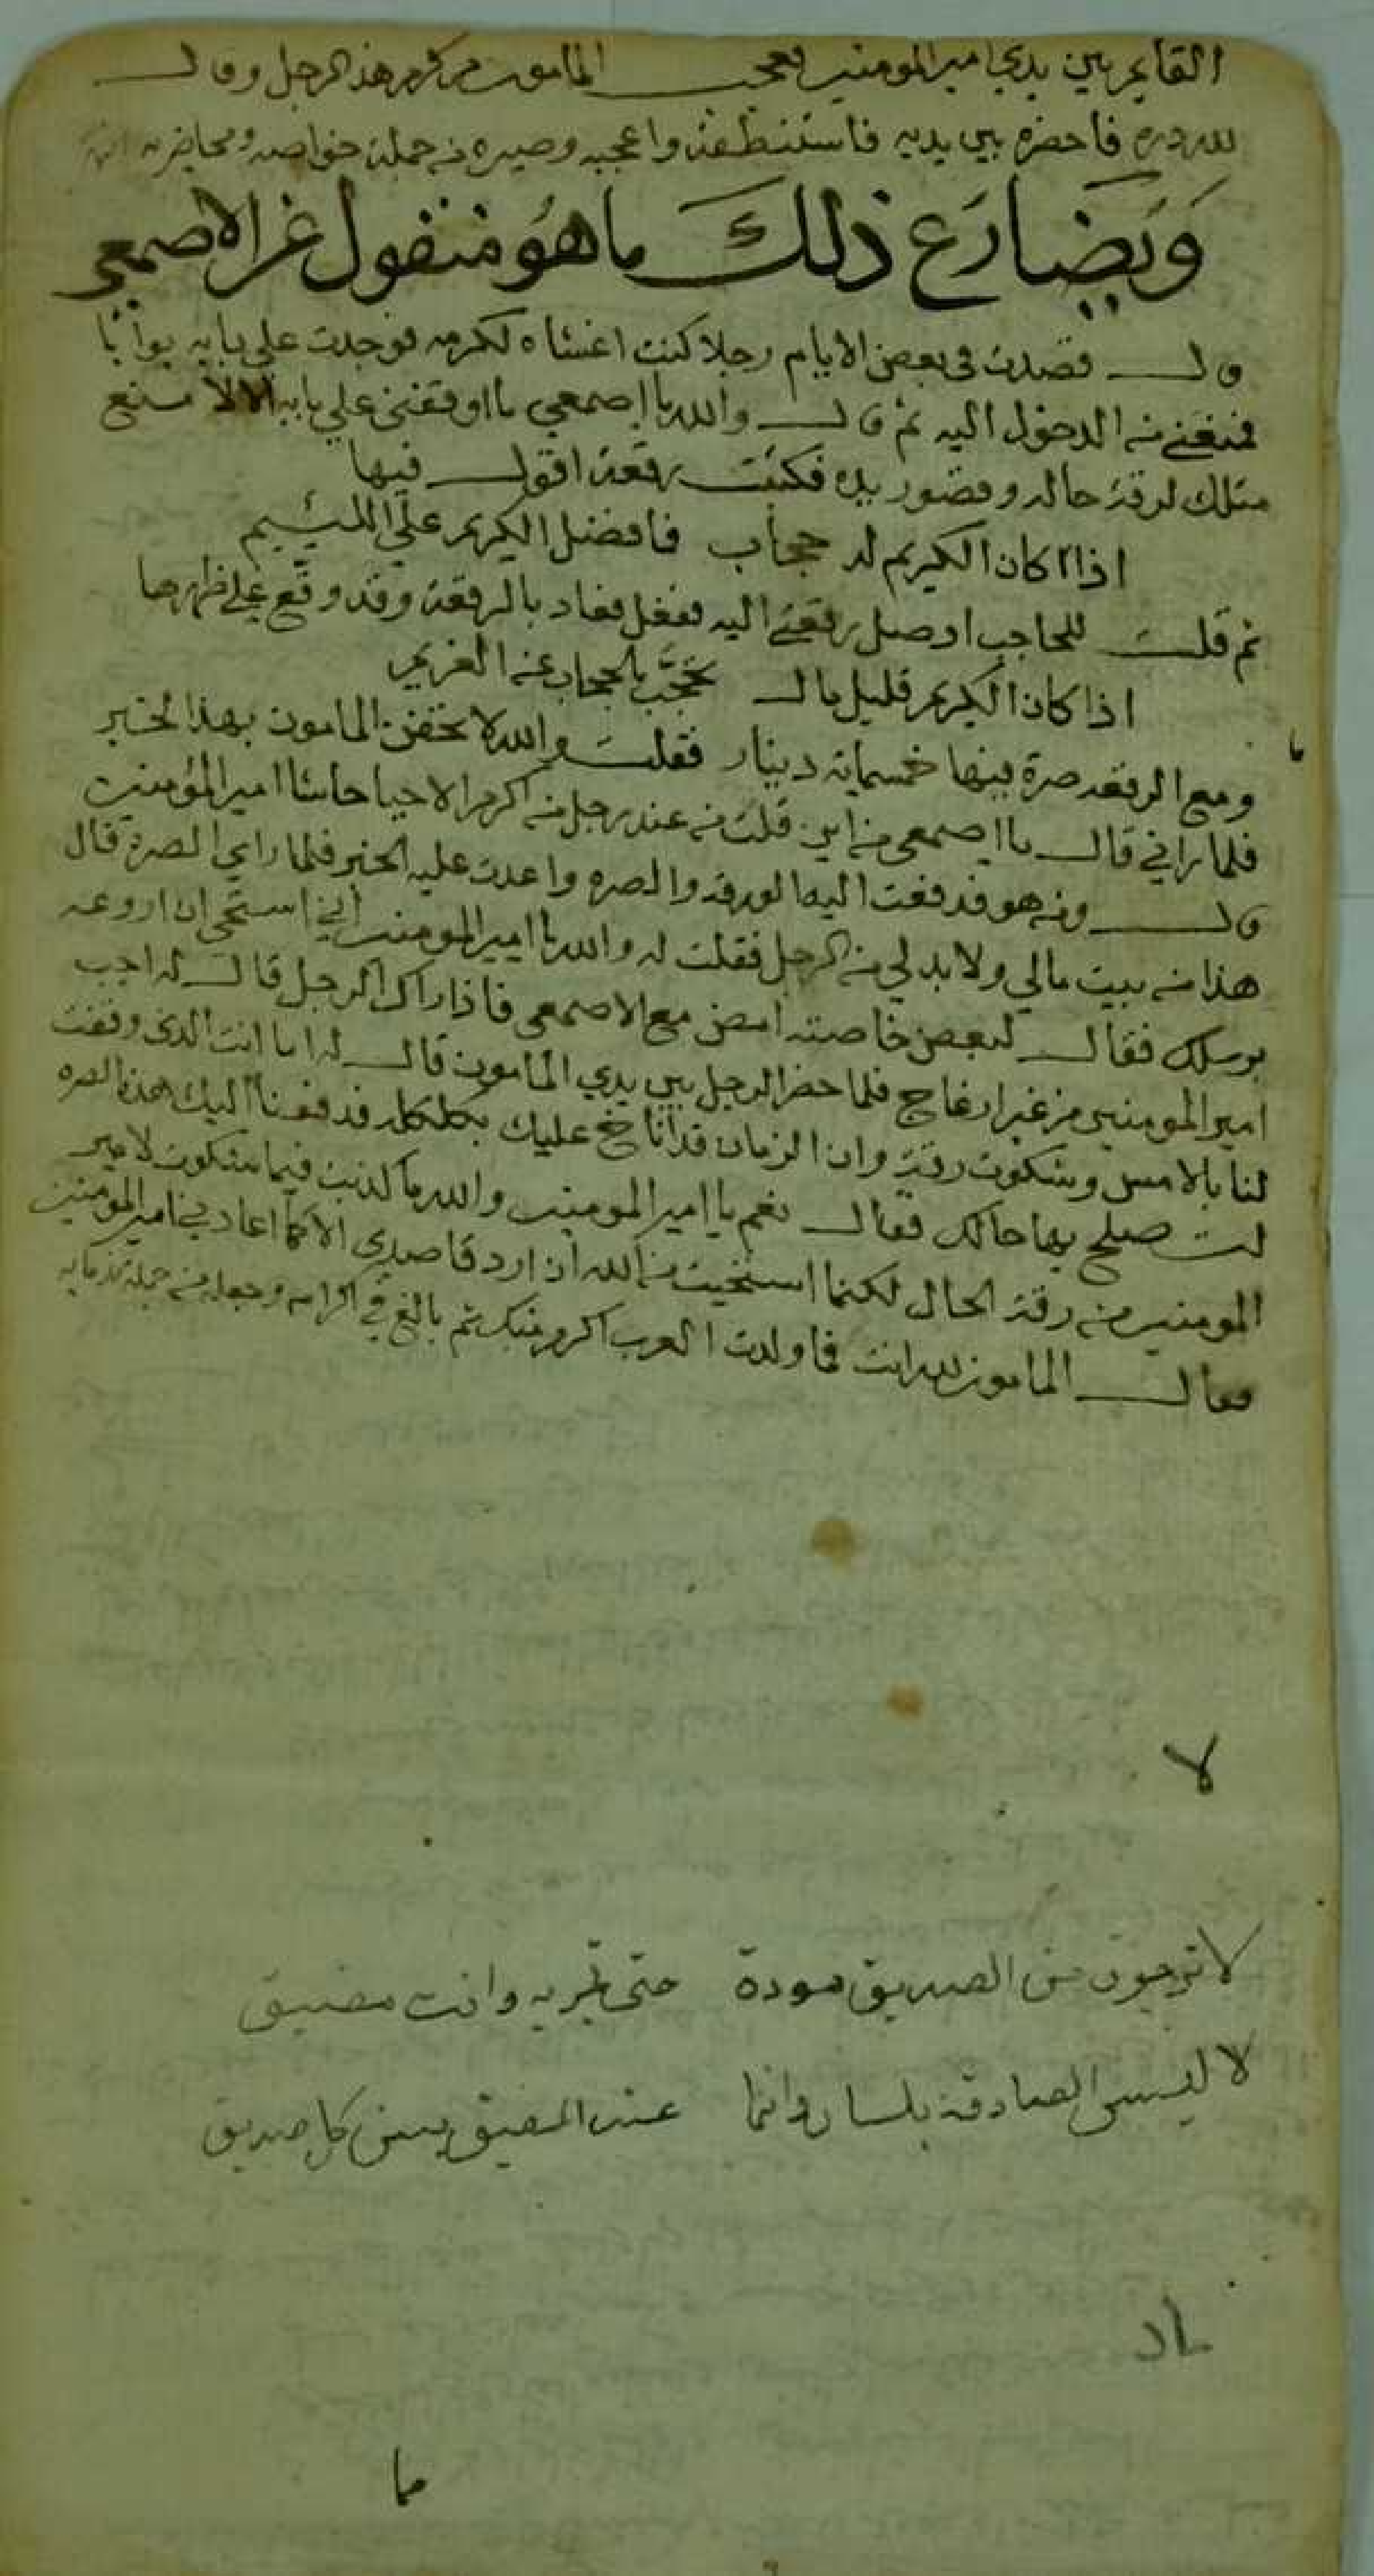 القايم بين يدي امير المومنين فعجب المامون من كرم هذا الرجل وقال
لله دره فاحضره بين يديه فاستنطقه واعجبه وصيره من جملة خواصه ومحاضريه
وَيُضَارع ذلك ما هُو منقول عن الاصمعي
قال قصدت في بعض الايام رجلا كنت اغشاه لكرمه فوجدت علي بابه بوابا
فمنعني من الدخول اليه ثم قال والله يا اصمعي ما اوقفني علي بابه الا لامنع
مثلك لرقة حاله وقصور يده فكتبت رقعة اقول فيها
اذا كان الكريم له حجاب فما فضل الكريم علي اللئيم
ثم قلت للحاجب اوصل رقعتي اليه ففعل فعاد بالرقعة وقد وقع علي ظهرها
اذا كان الكريم قليل مال تحجَّب بالحجاب عن الغريم
ومع الرقعة صرة فيها خمسماية دينار فقلت والله لا تحفن المامون بهذا الخبر
فلما راني قال يا اصمعي من اين قلت من عند رجل من اكرم الاحيا حاشا امير المؤمنين
قال ومن هو فدفعت اليه الورقه والصره واعدت عليه الخبر فلما راي الصرة قال
هذا من بيت مالي ولا بد لي من الرجل فقلت له والله يا امير المومنين اني استحي ان اروعه
برسلك فقال لبعض خاصته امض مع الاصمعي فاذا راك الرجل قال له اجب
امير المومنين من غير ازعاج فلما حضر الرجل بين يدي المامون قال له اما انت الذي وقفت
لنا بالامس وشكوت رقة وان الزمان قد اناخ عليك بكلكله فدفعنا اليك هذه الصره
لتصلح بها حالك فقال نعم يا امير المومنين والله ما كذبت فيما شكوت لامير
المومنين من رقة الحال لكنما استحيت من الله ان ارد قاصدي الا كما اعادني امير المومنين
فقال المامون لله انت فما ولدت العرب اكرم منك ثم بالغ في اكرامه وجعله من جملة ندمايه
لا
لا ترجون من الصديق مودة حتى تجربه وانت مضيق
لا ليس الصادقة بلسان وانما عند المضيق يبين كل صديق
ما